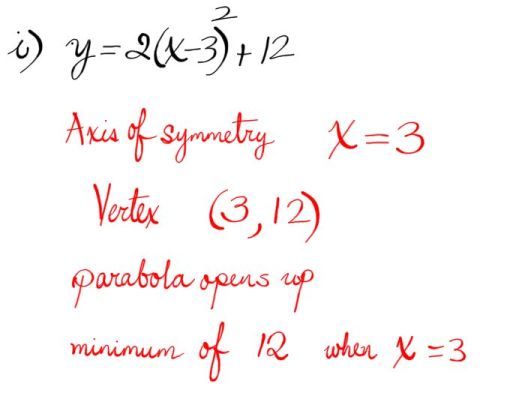 i) y=2(x-3)²+12
Axis of symmetry x=3
Vertex (3,12)
parabola opens up
minimum of 12 when x=3